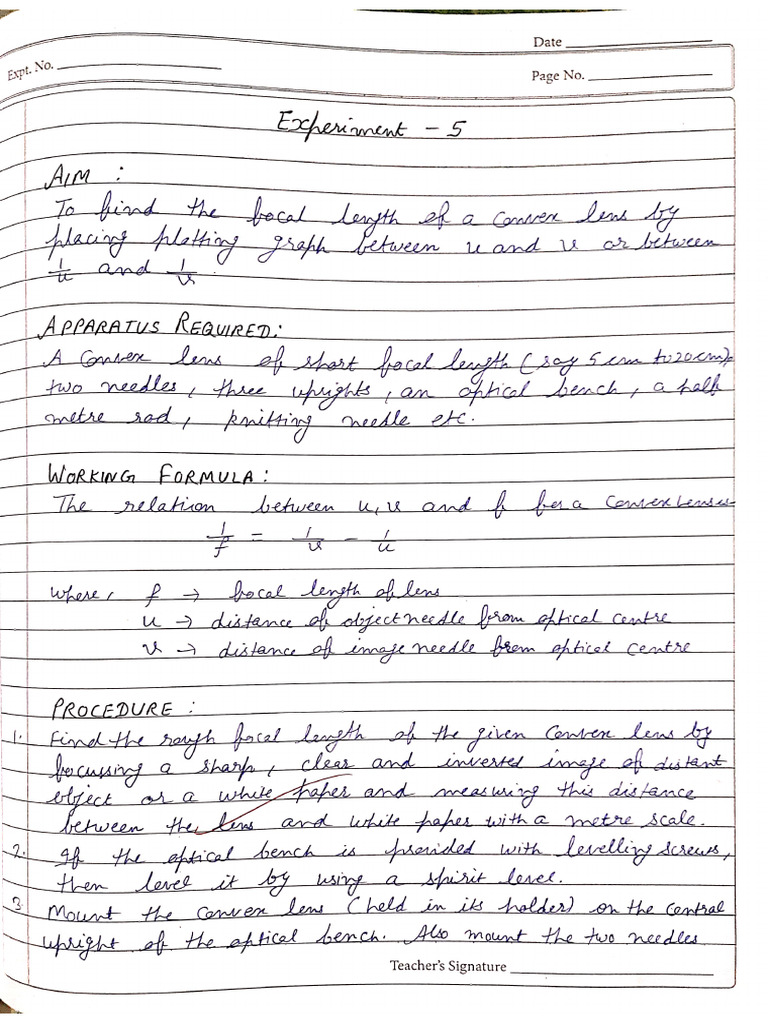 Date
Expt. No.
Page No.
Experiment - 5
AIM :
To find the focal length of a convex lens by
placing plotting graph between u and v or between
1/u and 1/v.
APPARATUS REQUIRED:
A Convex lens of short focal length (say 5 cm to 20 cm),
two needles, three uprights, an optical bench, a half
metre rod, knitting needle etc.
WORKING FORMULA:
The relation between u, v and f for a convex lens is-
1/f = 1/v - 1/u
where, f → focal length of lens
u → distance of object needle from optical centre
v → distance of image needle from optical centre
PROCEDURE :
1. Find the rough focal length of the given convex lens by
focussing a sharp, clear and inverted image of distant
object or a white paper and measuring this distance
between the lens and white paper with a metre scale.
2. If the optical bench is provided with levelling screws,
then level it by using a spirit level.
3. Mount the convex lens (held in its holder) on the central
upright of the optical bench. Also mount the two needles
Teacher's Signature